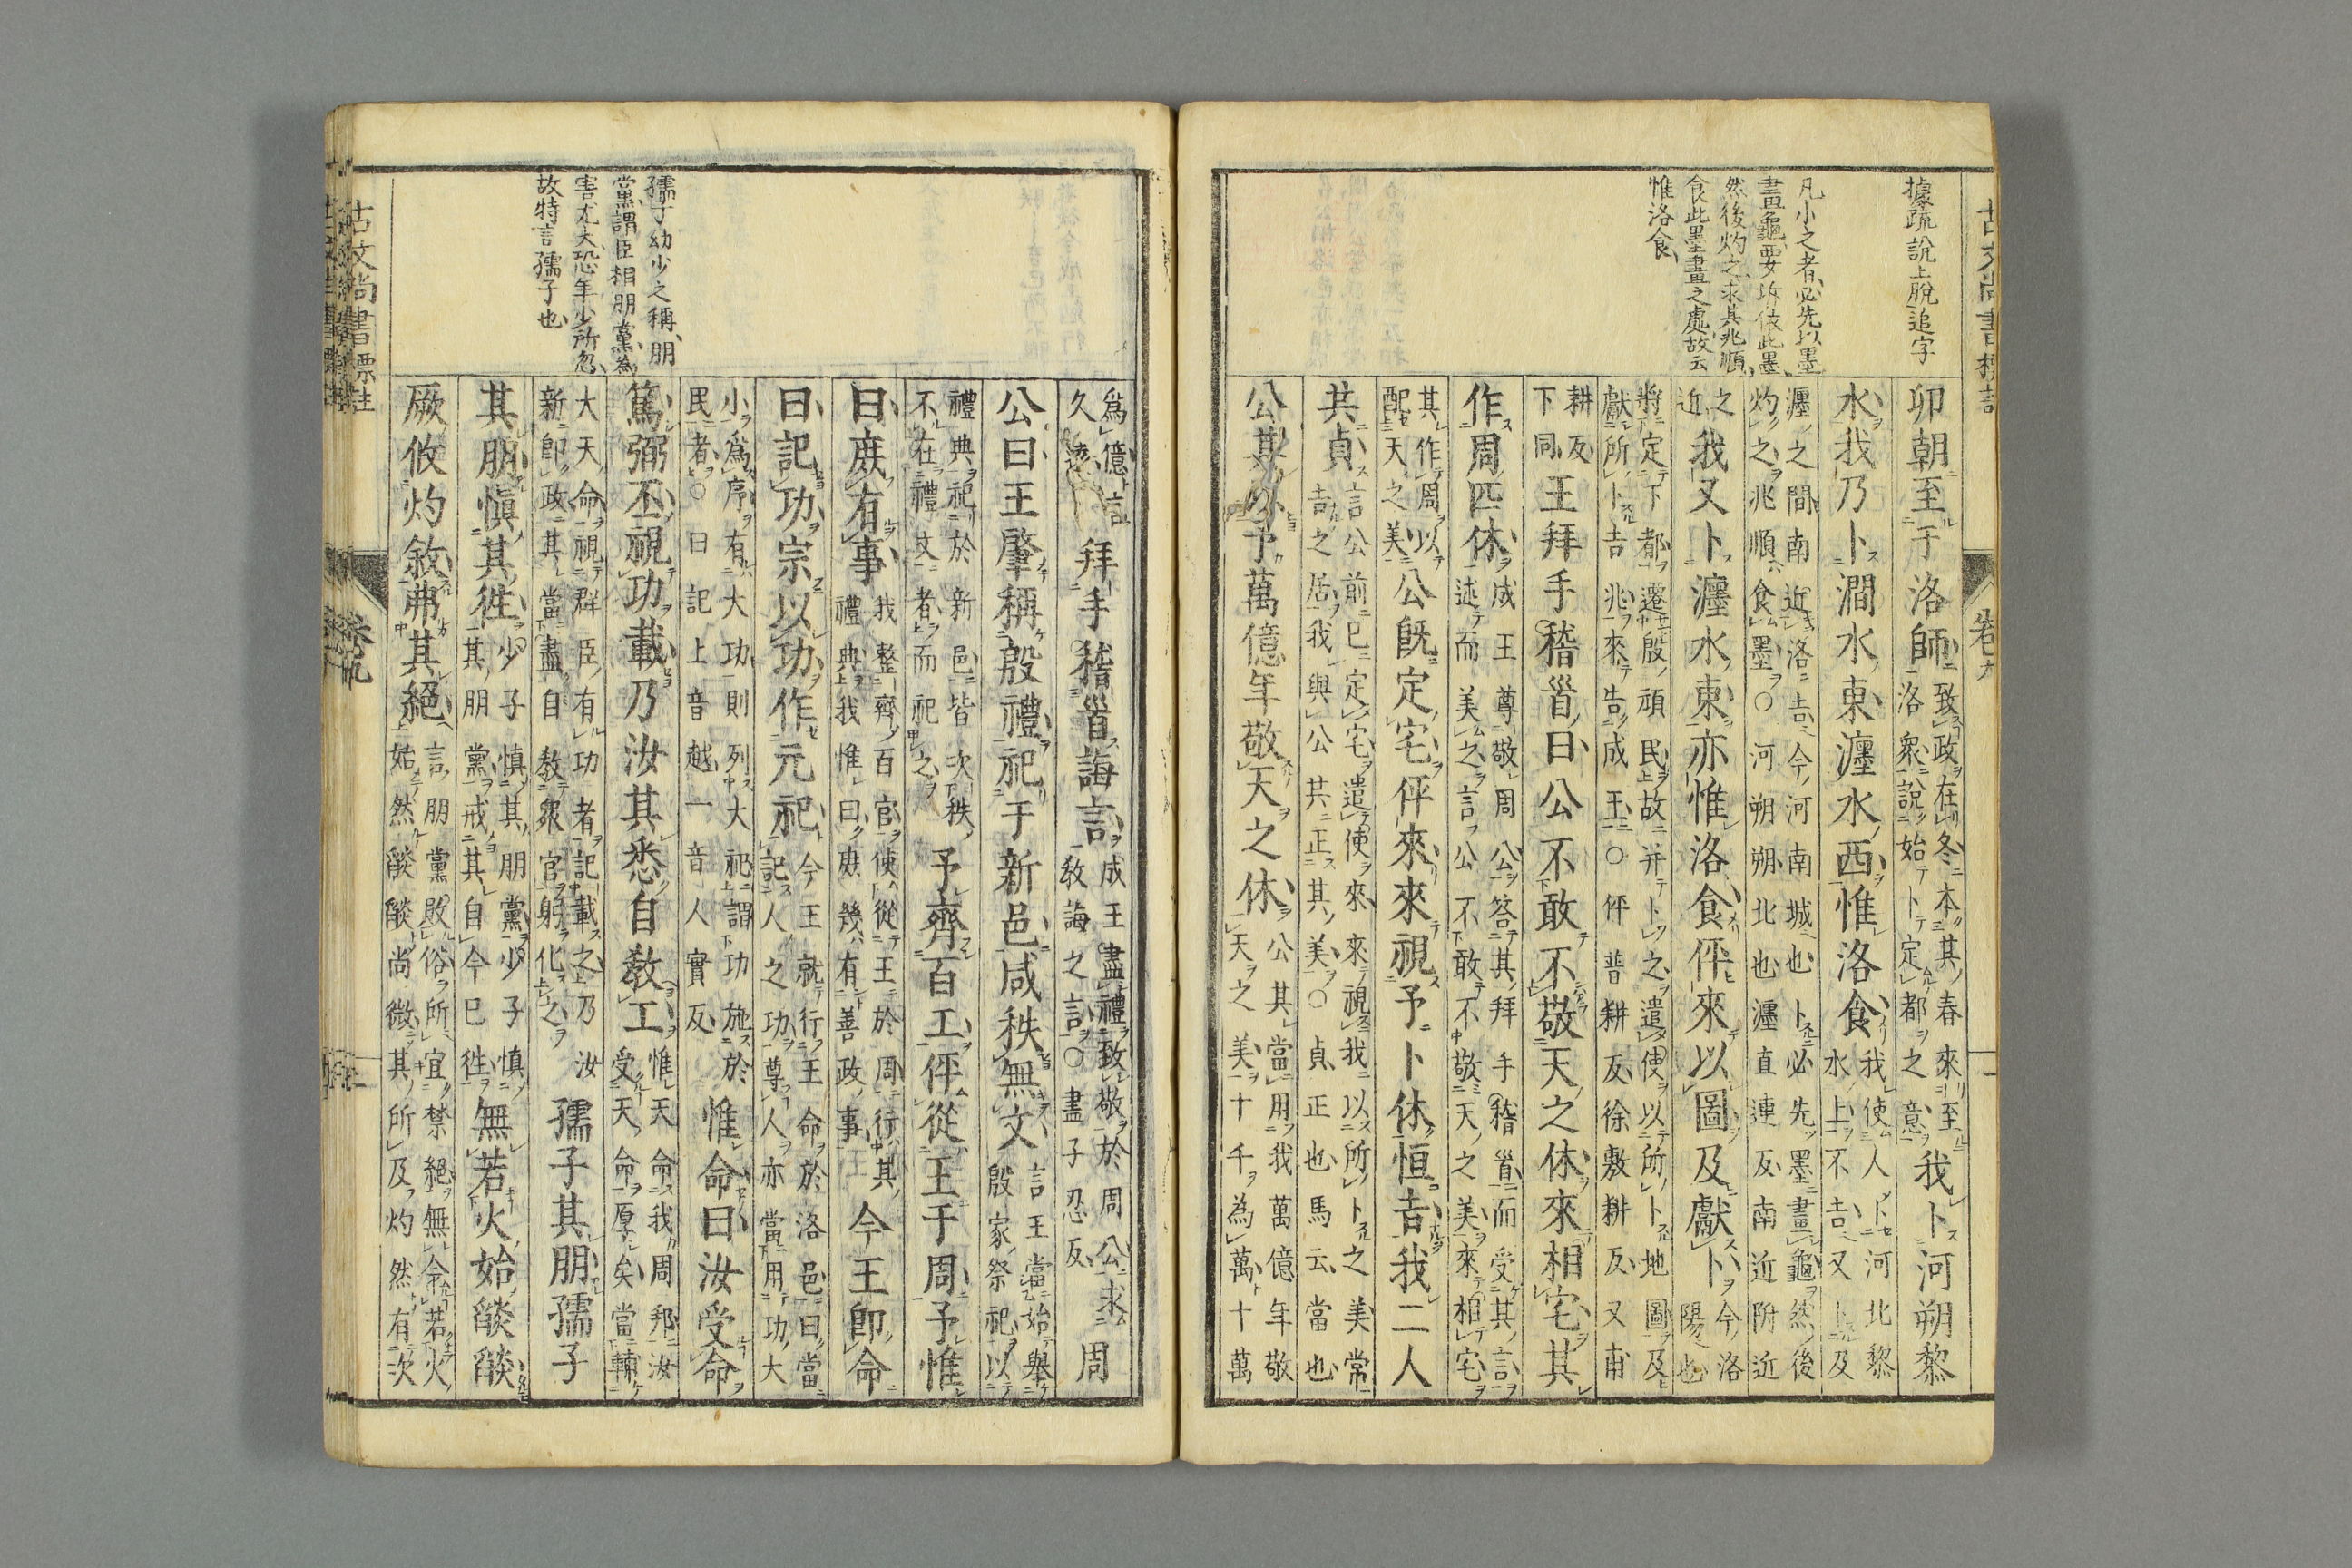 古文尚書標註
卷九
據疏說上脫追字
凡小之者必先以墨
畫龜要坼依此墨
然後灼之求其兆順
食此墨畫之處故云
惟洛食
卯朝至于洛師致政在冬本其春來至洛衆說始卜定都之意我卜河朔黎
水我乃卜澗水東瀍水西惟洛食我使人卜河北黎水上不吉又卜及
瀍之間南近洛吉今河南城也卜必先墨畫龜然後灼之兆順食墨○河朔朔北也瀍直連反南近附近
之近我又卜瀍水東亦惟洛食伻來以圖及獻卜今洛陽也
將定下都遷殷頑民故并卜之遣使以所卜地圖及獻所卜吉兆來告成王○伻普耕反徐敷耕反又甫
耕反下同王拜手稽首曰公不敢不敬天之休來相宅其
作周匹休成王尊敬周公答其拜手稽首而受其言述而美之言公不敢不敬天之美來相宅
其作周以配天之美公旣定宅伻來來視予卜休恒吉我二人
共貞言公前已定宅遣使來來視我以所卜之美常吉之居我與公共正其美○貞正也馬云當也
公其以予萬億年敬天之休公其當用我萬億年敬天之美十千為萬十萬
孺子幼少之稱朋
黨謂臣相朋黨為
害尤大恐年少所忽
故特言孺子也
爲億言久遠拜手稽首誨言成王盡禮致敬於周公求教誨之言○盡子忍反周
公曰王肇稱殷禮祀于新邑咸秩無文言王當始舉殷家祭祀以
禮典祀於新邑皆次秩不在禮文者而祀之予齊百工伻從王于周予惟
曰庶有事我整齊百官使從王於周行其禮典我惟曰庶幾有善政事今王卽命
曰記功宗以功作元祀今王就行王命於洛邑曰當記人之功尊人亦當用功大
小爲序有大功則列大祀謂功施於民者○曰記上音越一音人實反惟命曰汝受命
篤弼丕視功載乃汝其悉自敎工惟天命我周邦汝受天命厚矣當輔
大天命視群臣有功者記載之乃汝新卽政其當盡自敎衆官躬化之孺子其朋孺子
其朋愼其徃少子慎其朋黨少子慎其朋黨戒其自今已徃無若火始燄燄
厥攸灼敘弗其絕言朋黨敗俗所宜禁絕無令若火始然燄燄尚微其所及灼然有次
古文尚書標註
卷九